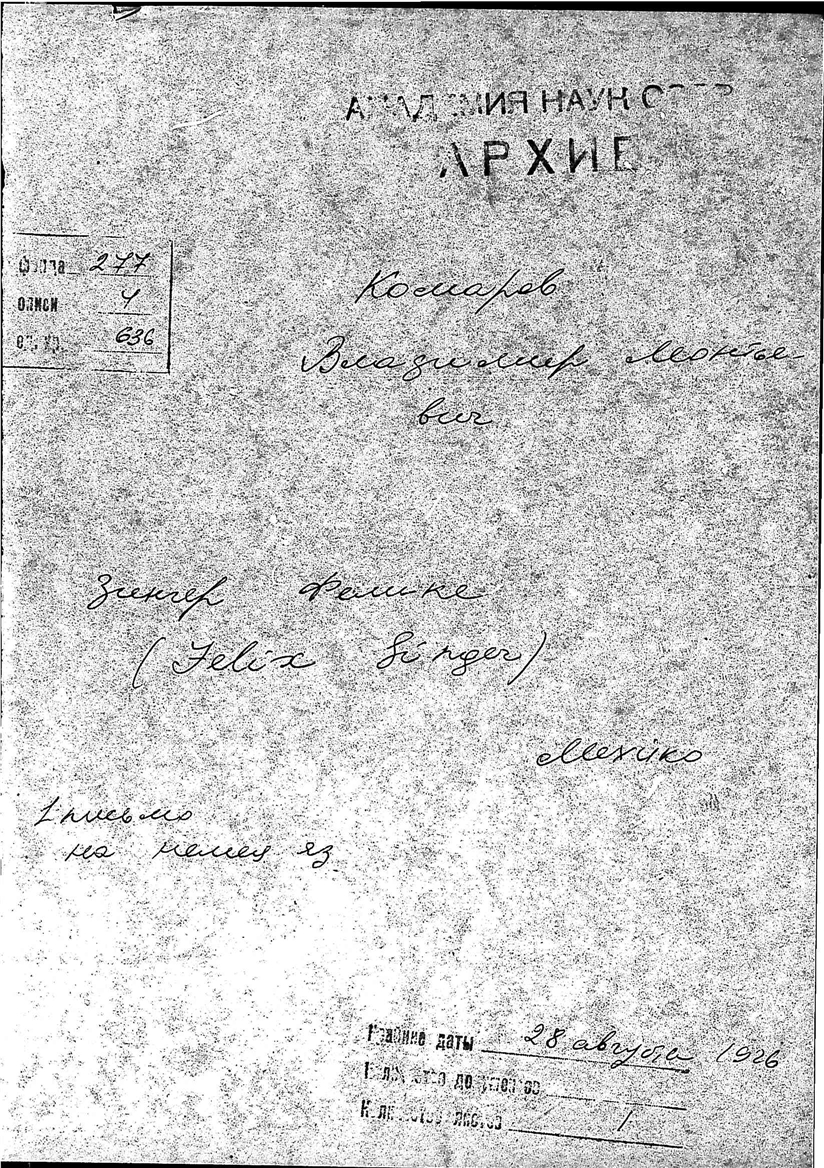 АКАДЕМИЯ НАУК СССР
АРХИВ
фонда 277
описи 4
ед. хр. 636
Комаров
Владимир Леонтье
вич
Зингер Феликс
(Felix Singer)
Мехико
1 письмо
на немец яз.
Крайние даты 28 августа 1926
Количество документов
Количество листов 1